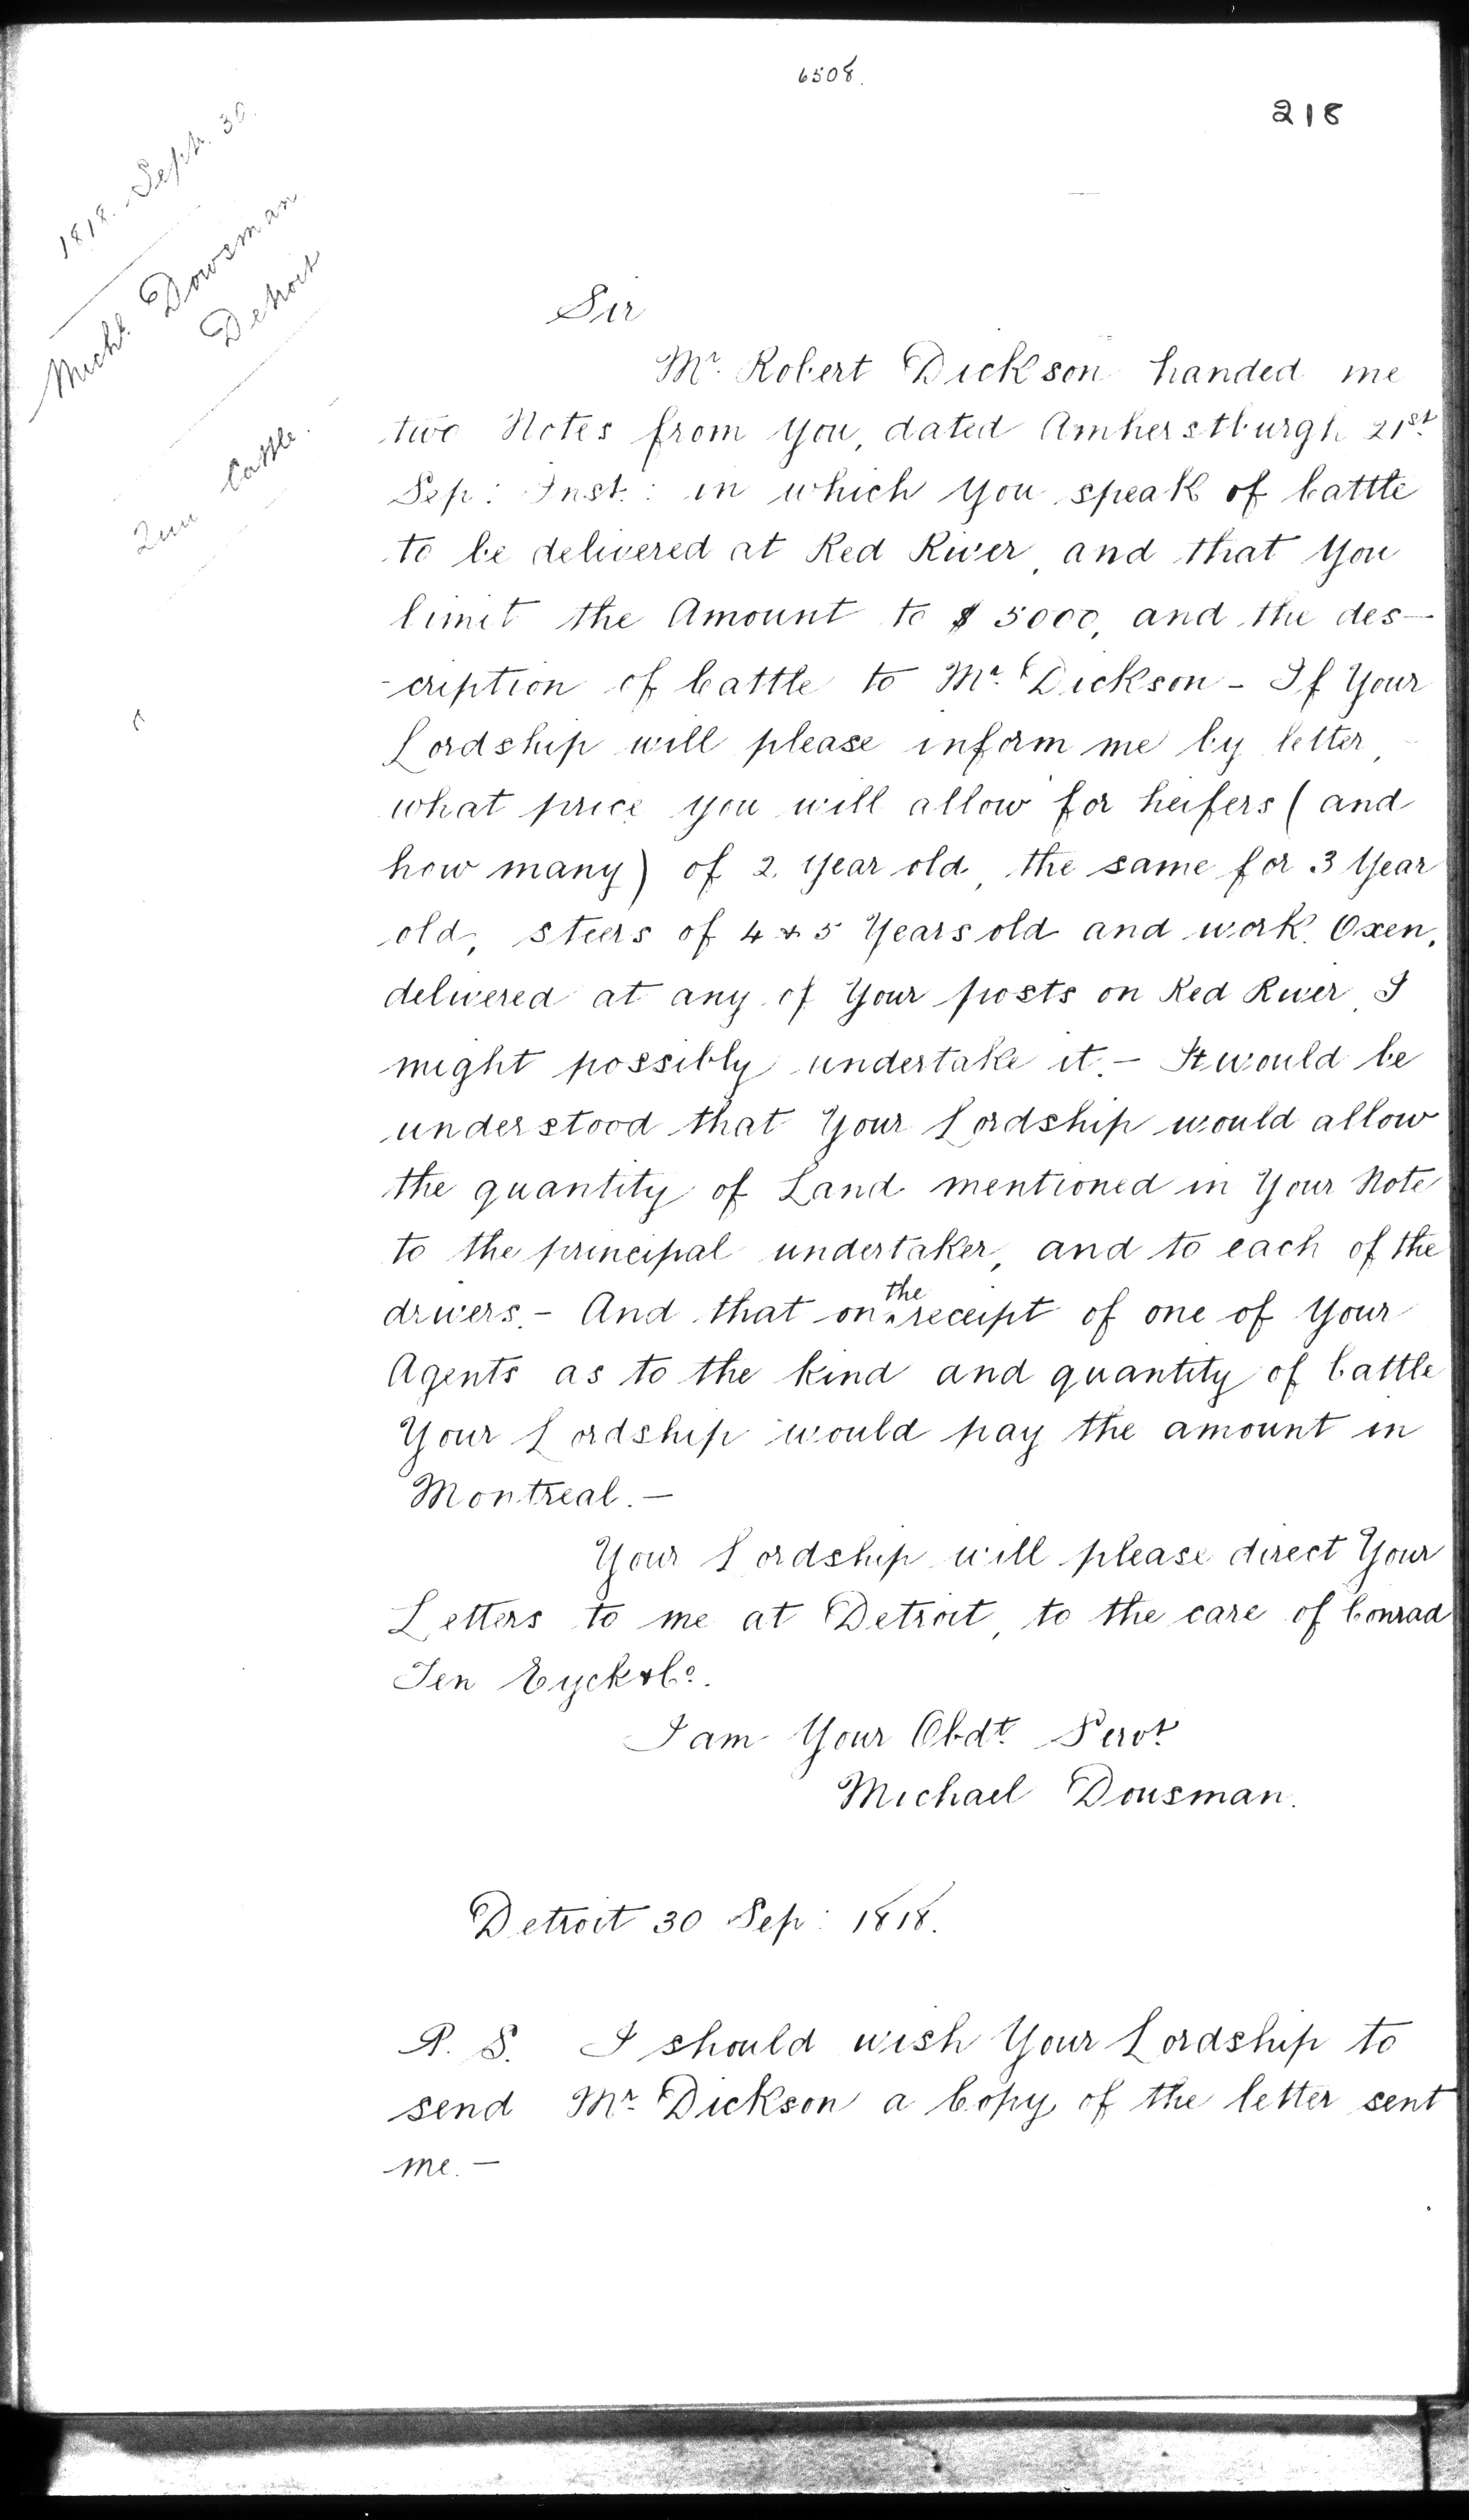 6508.
218
1818. Septr. 30.
Michl. Dowsman
Detroit
Cattle.
Sir
Mr. Robert Dickson handed me
two Notes from You, dated Amherstburgh 21st.
Sep: Inst: in which You speak of Cattle
to be delivered at Red River, and that You
limit the Amount to $ 5000, and the des-
-cription of Cattle to Mr. Dickson - If Your
Lordship will please inform me by letter,
what price you will allow for heifers (and
how many) of 2 Year old, the same for 3 Year
old, steers of 4 & 5 Years old and work. Oxen,
delivered at any of Your posts on Red River, I
might possibly undertake it. - It would be
understood that Your Lordship would allow
the quantity of Land mentioned in Your Note
to the principal undertaker, and to each of the
drivers. - And that on the receipt of one of Your
Agents as to the kind and quantity of Cattle
Your Lordship would pay the amount in
Montreal. -
Your Lordship will please direct Your
Letters to me at Detroit, to the care of Conrad
Ten Eyck & Co.
I am Your Obdt. Servt.
Michael Dousman.
Detroit 30 Sep: 1818.
P. S. I should wish Your Lordship to
send Mr. Dickson a Copy of the letter sent
me. -